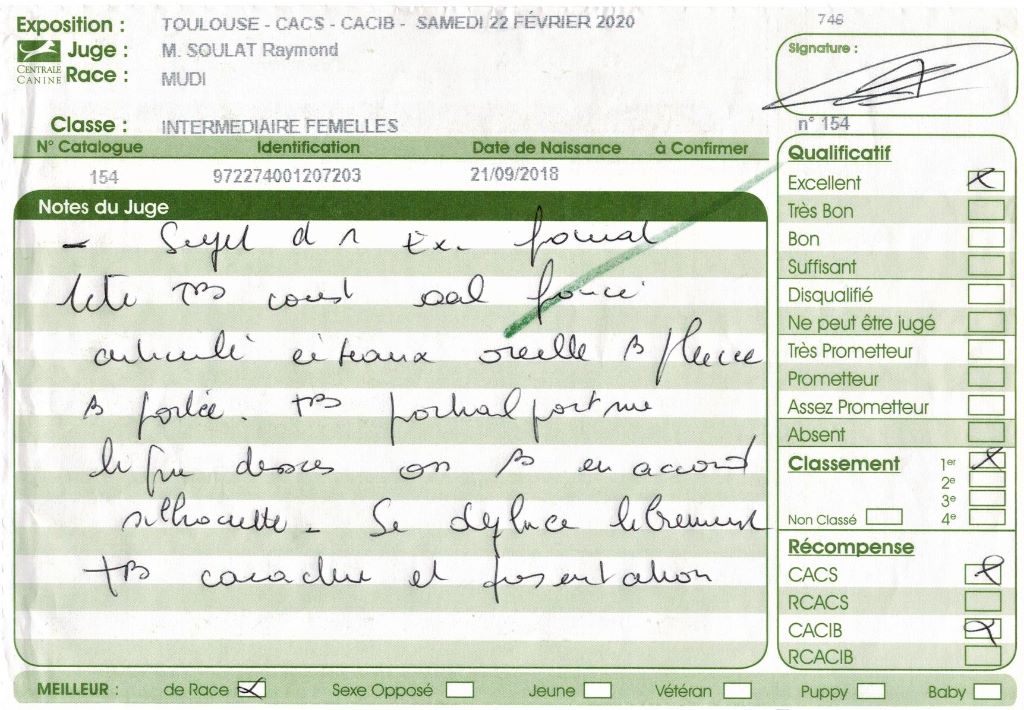 Exposition : TOULOUSE - CACS - CACIB - SAMEDI 22 FÉVRIER 2020
746
CENTRALE CANINE
Juge : M. SOULAT Raymond
Race : MUDI
Signature :
Classe : INTERMEDIAIRE FEMELLES
n° 154
N° Catalogue Identification Date de Naissance à Confirmer
154 972274001207203 21/09/2018
Notes du Juge
- Sujet d 1 Ex. format
tete TB const oeil foncé
oreille B
B portée. TB
ligne dessus en B en accord
silhouette - Se deplace librement
TB caractere et presentation
Qualificatif
Excellent
Très Bon
Bon
Suffisant
Disqualifié
Ne peut être jugé
Très Prometteur
Prometteur
Assez Prometteur
Absent
Classement 1er
2e
3e
Non Classé 4e
Récompense
CACS
RCACS
CACIB
RCACIB
MEILLEUR : de Race Sexe Opposé Jeune Vétéran Puppy Baby